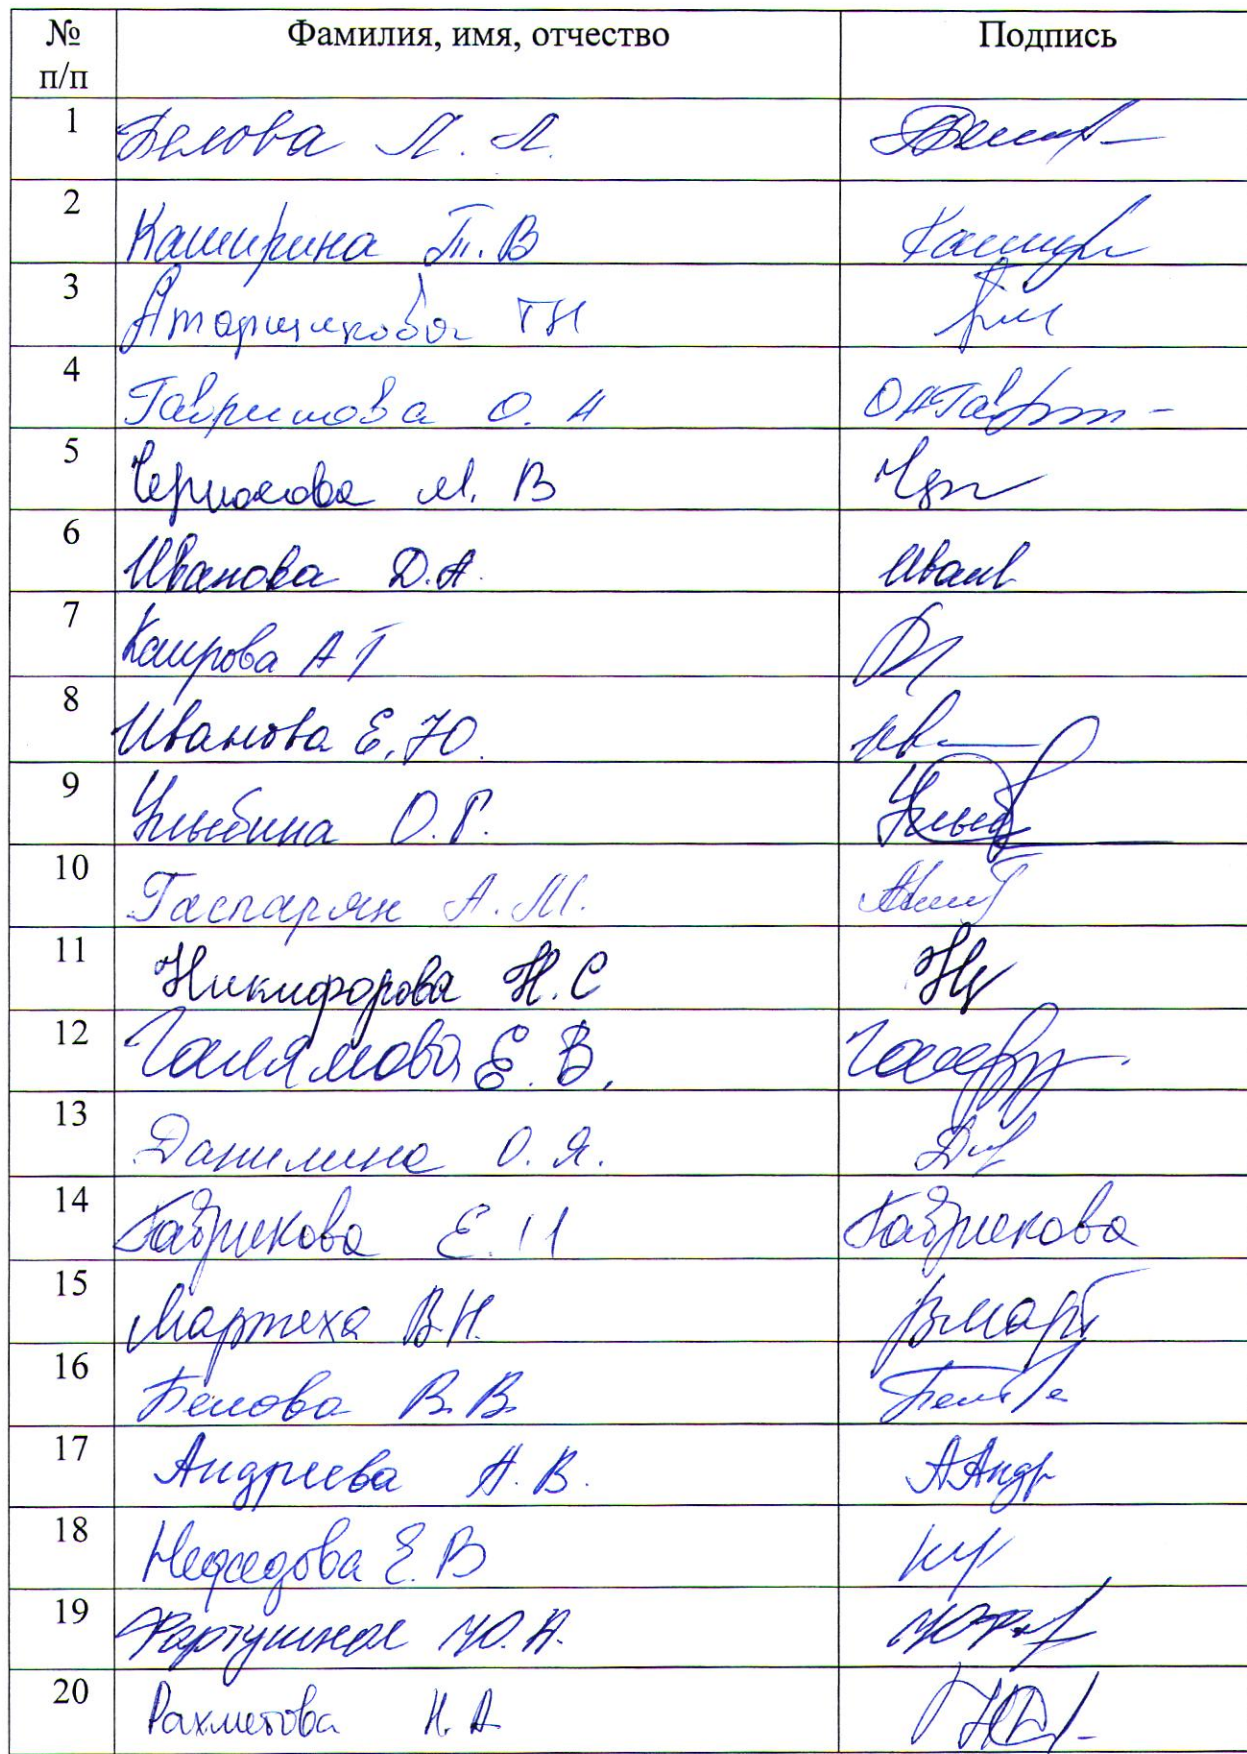 № п/п Фамилия, имя, отчество Подпись
1 Белова Л. Л.
2 Каширина Т. В
3 Атарщикова Т Н
4 Гаврилова О. А
5 М. В
6 Иванова Д. А. Иванв
7 Каирова А Г
8 Иванова Е. Ю. Ив
9 Улыбина О. Г. Улыб
10 Гаспарян А. М.
11 Никифорова Н. С
12 Галямова Е. В.
13 Данилина О. Я.
14 Габрикова Е. И Габрикова
15 Мартеха В. Н. ВМарт
16 Белова В. В.
17 Андреева А. В. ААндр
18 Нефедова Е. В
19 Ю. А.
20 Рахметова Н. А